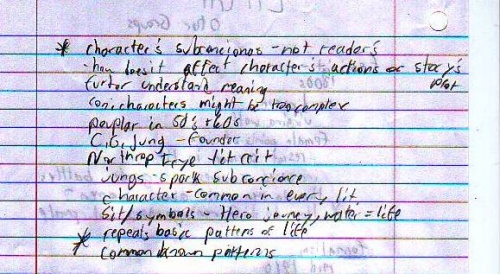 * character's subconcionas - not reader's
- how does it affect character's actions or story's plot
furter understand meaning
con: characters might be too complex
pouplar in 50's + 60's
C.G. Jung - founder
Northrop Frye lit crit
Jungs - spark subconcince
character - common in every lit
Sit/symbols - Hero journey, water = life
* repeats basic pattern of life
common known patterns